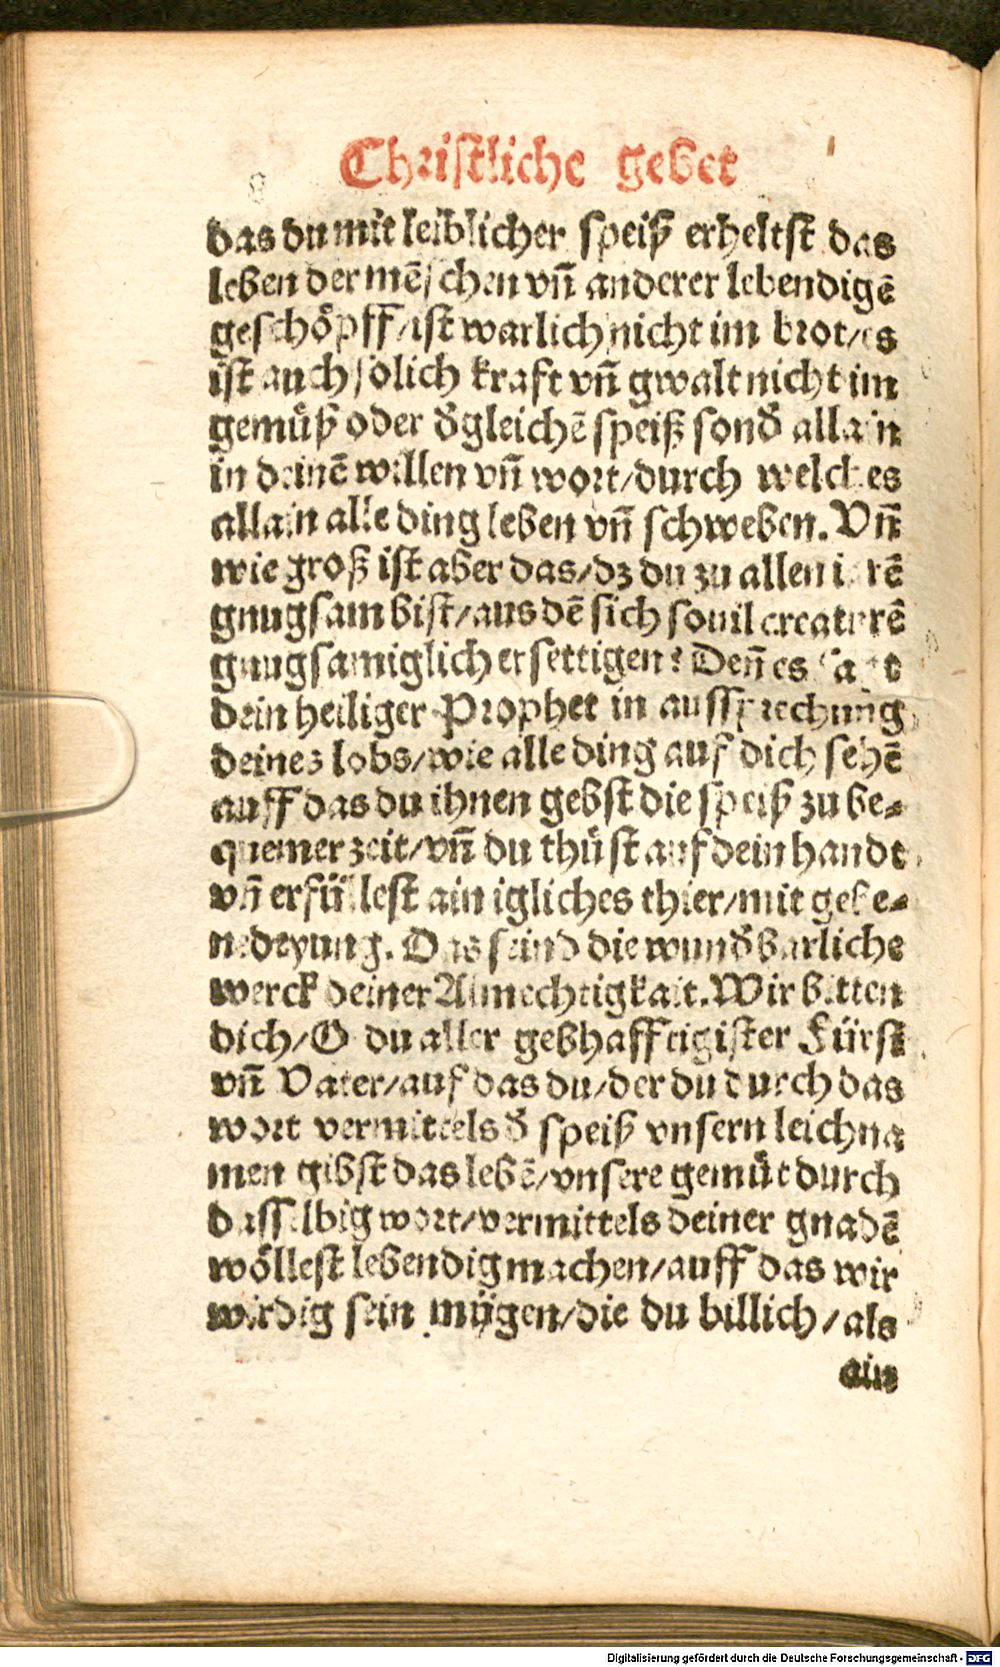 Christliche gebet
das du mit leiblicher speiß erheltst das
leben der mẽschen vñ anderer lebendigẽ
geschöpff/ist warlich nicht im brot/es
ist auch sölich kraft vñ gwalt nicht im
gemüß oder d̃gleichẽ speiß sond̃ allain
in deinẽ willen vñ wort/durch welches
allain alle ding leben vñ schweben. Vñ
wie groß ist aber das/dz du zu allen irẽ
gnugsam bist/aus dẽ sich souil creaturẽ
gnugsamiglich ersettigen? Deñ es sagt
dein heiliger Prophet in aussprechung
deines lobs/wie alle ding auf dich sehẽ
auff das du ihnen gebst die speiß zu be-
quemer zeit/vñ du thüst auf dein handt
vñ erfüllest ain igliches thier/mit gebe-
nedeyung. Das seind die wund̃barliche
werck deiner Almechtigkait. Wir bitten
dich/O du aller gebhafftigister Fürst
vñ Vater/auf das du/der du durch das
wort vermittels d̃ speiß vnsern leichna
men gibst das lebẽ/vnsere gemüt durch
dasselbig wort/vermittels deiner gnadẽ
wöllest lebendig machen/auff das wir
wirdig sein mügen/die du billich/als
ain
Digitalisierung gefördert durch die Deutsche Forschungsgemeinschaft - DFG